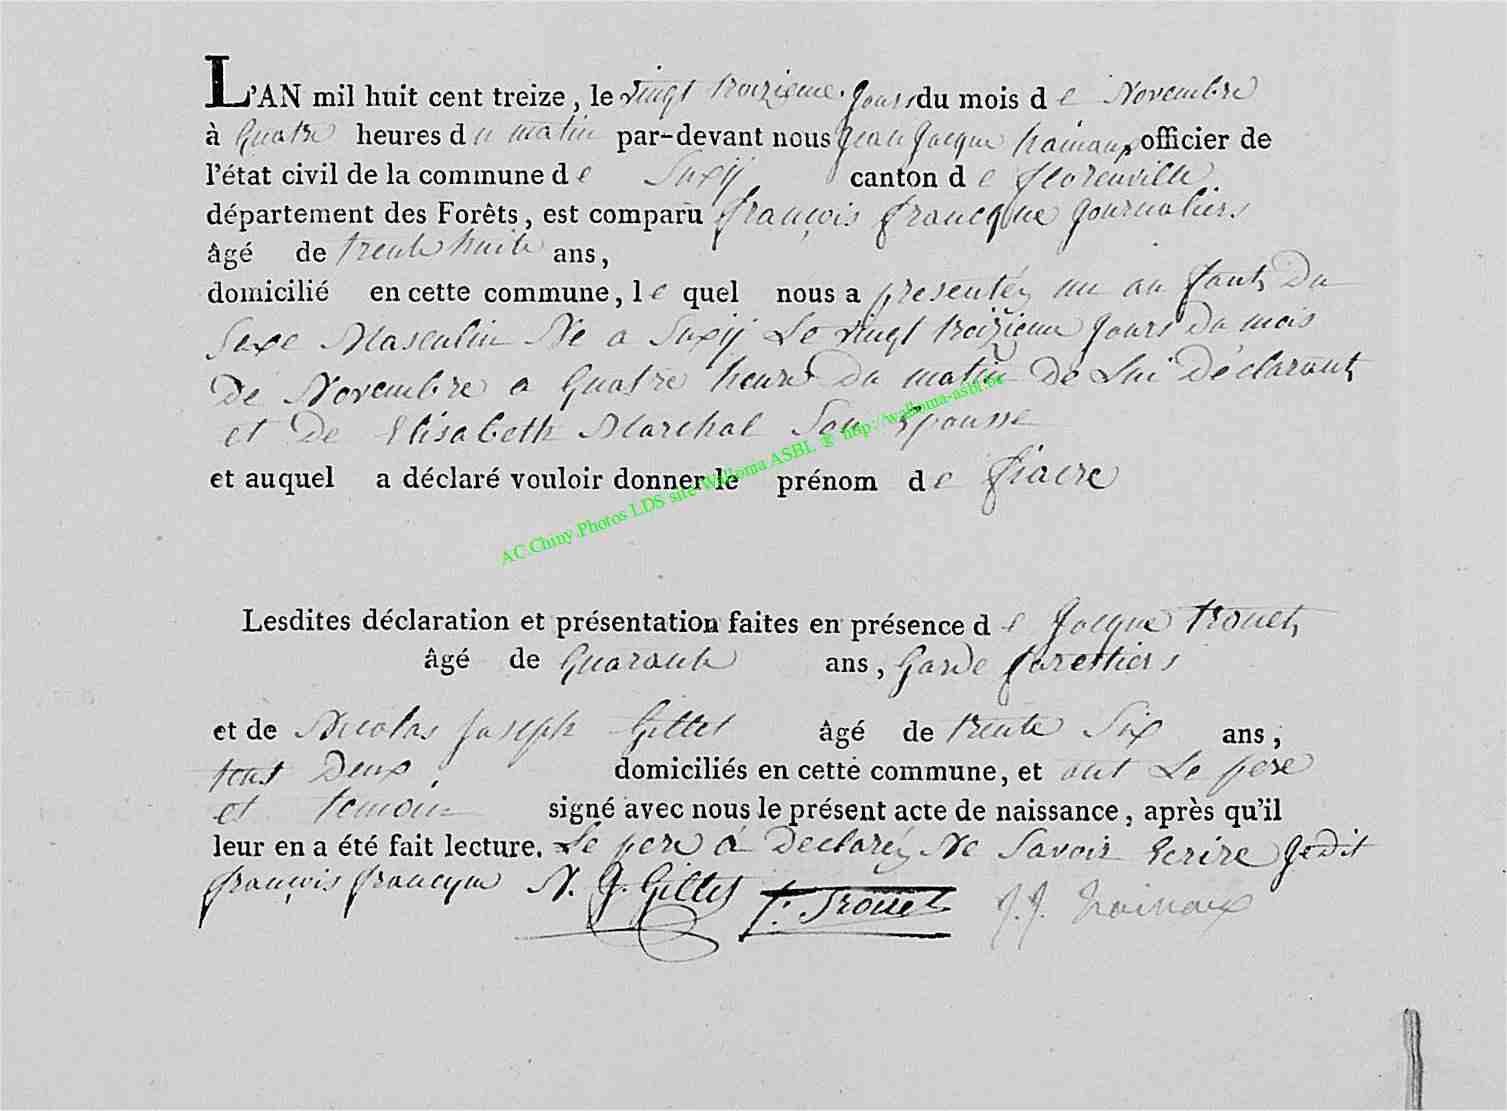 L'AN mil huit cent treize, le vingt troizieme jours du mois de Novembre
à Quatre heures du matin par-devant nous Jean Jacque hainaux officier de
l'état civil de la commune de Suxij canton de florenville
département des Forêts, est comparu françois francque journaliers
âgé de trente huite ans,
domicilié en cette commune, le quel nous a presentéz un an fant Du
Sexe Masculin Né a Suxij Le vingt troizieme jours Du mois
De Novembre a Quatre heure Du matin De Lui Déclarant
et De Elisabeth Marchal Son Epousse
et auquel a déclaré vouloir donner le prénom de fiacre
AC.Chiny.Photos LDS site Wallonia ASBL ® http://wallonia-asbl.be
Lesdites déclaration et présentation faites en présence de Jacque trouet
âgé de Quarante ans, Garde forestiers
et de Nicolas Joseph Gillet âgé de trente Six ans,
tous Deux domiciliés en cette commune, et ont Le pere
et temoin signé avec nous le présent acte de naissance, après qu'il
leur en a été fait lecture. Le pere a Declaréz Ne Savoir Ecrire Jedit
françois francque N. J. Gillet J: Trouet J. J. hainaux